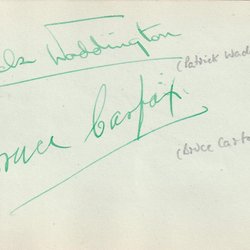 Waddington
(Patrick Wad
Bruce Carfax.
(Bruce Carfa